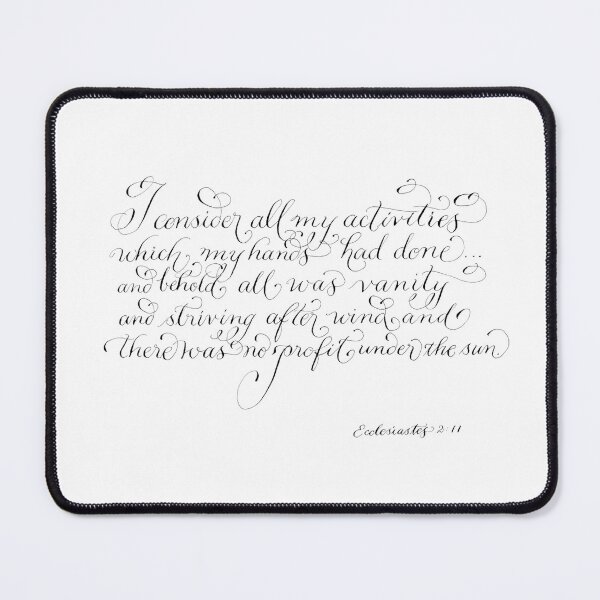 I consider all my activities
which my hands had done...
and behold all was vanity
and striving after wind and
there was no profit under the sun.
Ecclesiastes 2:11